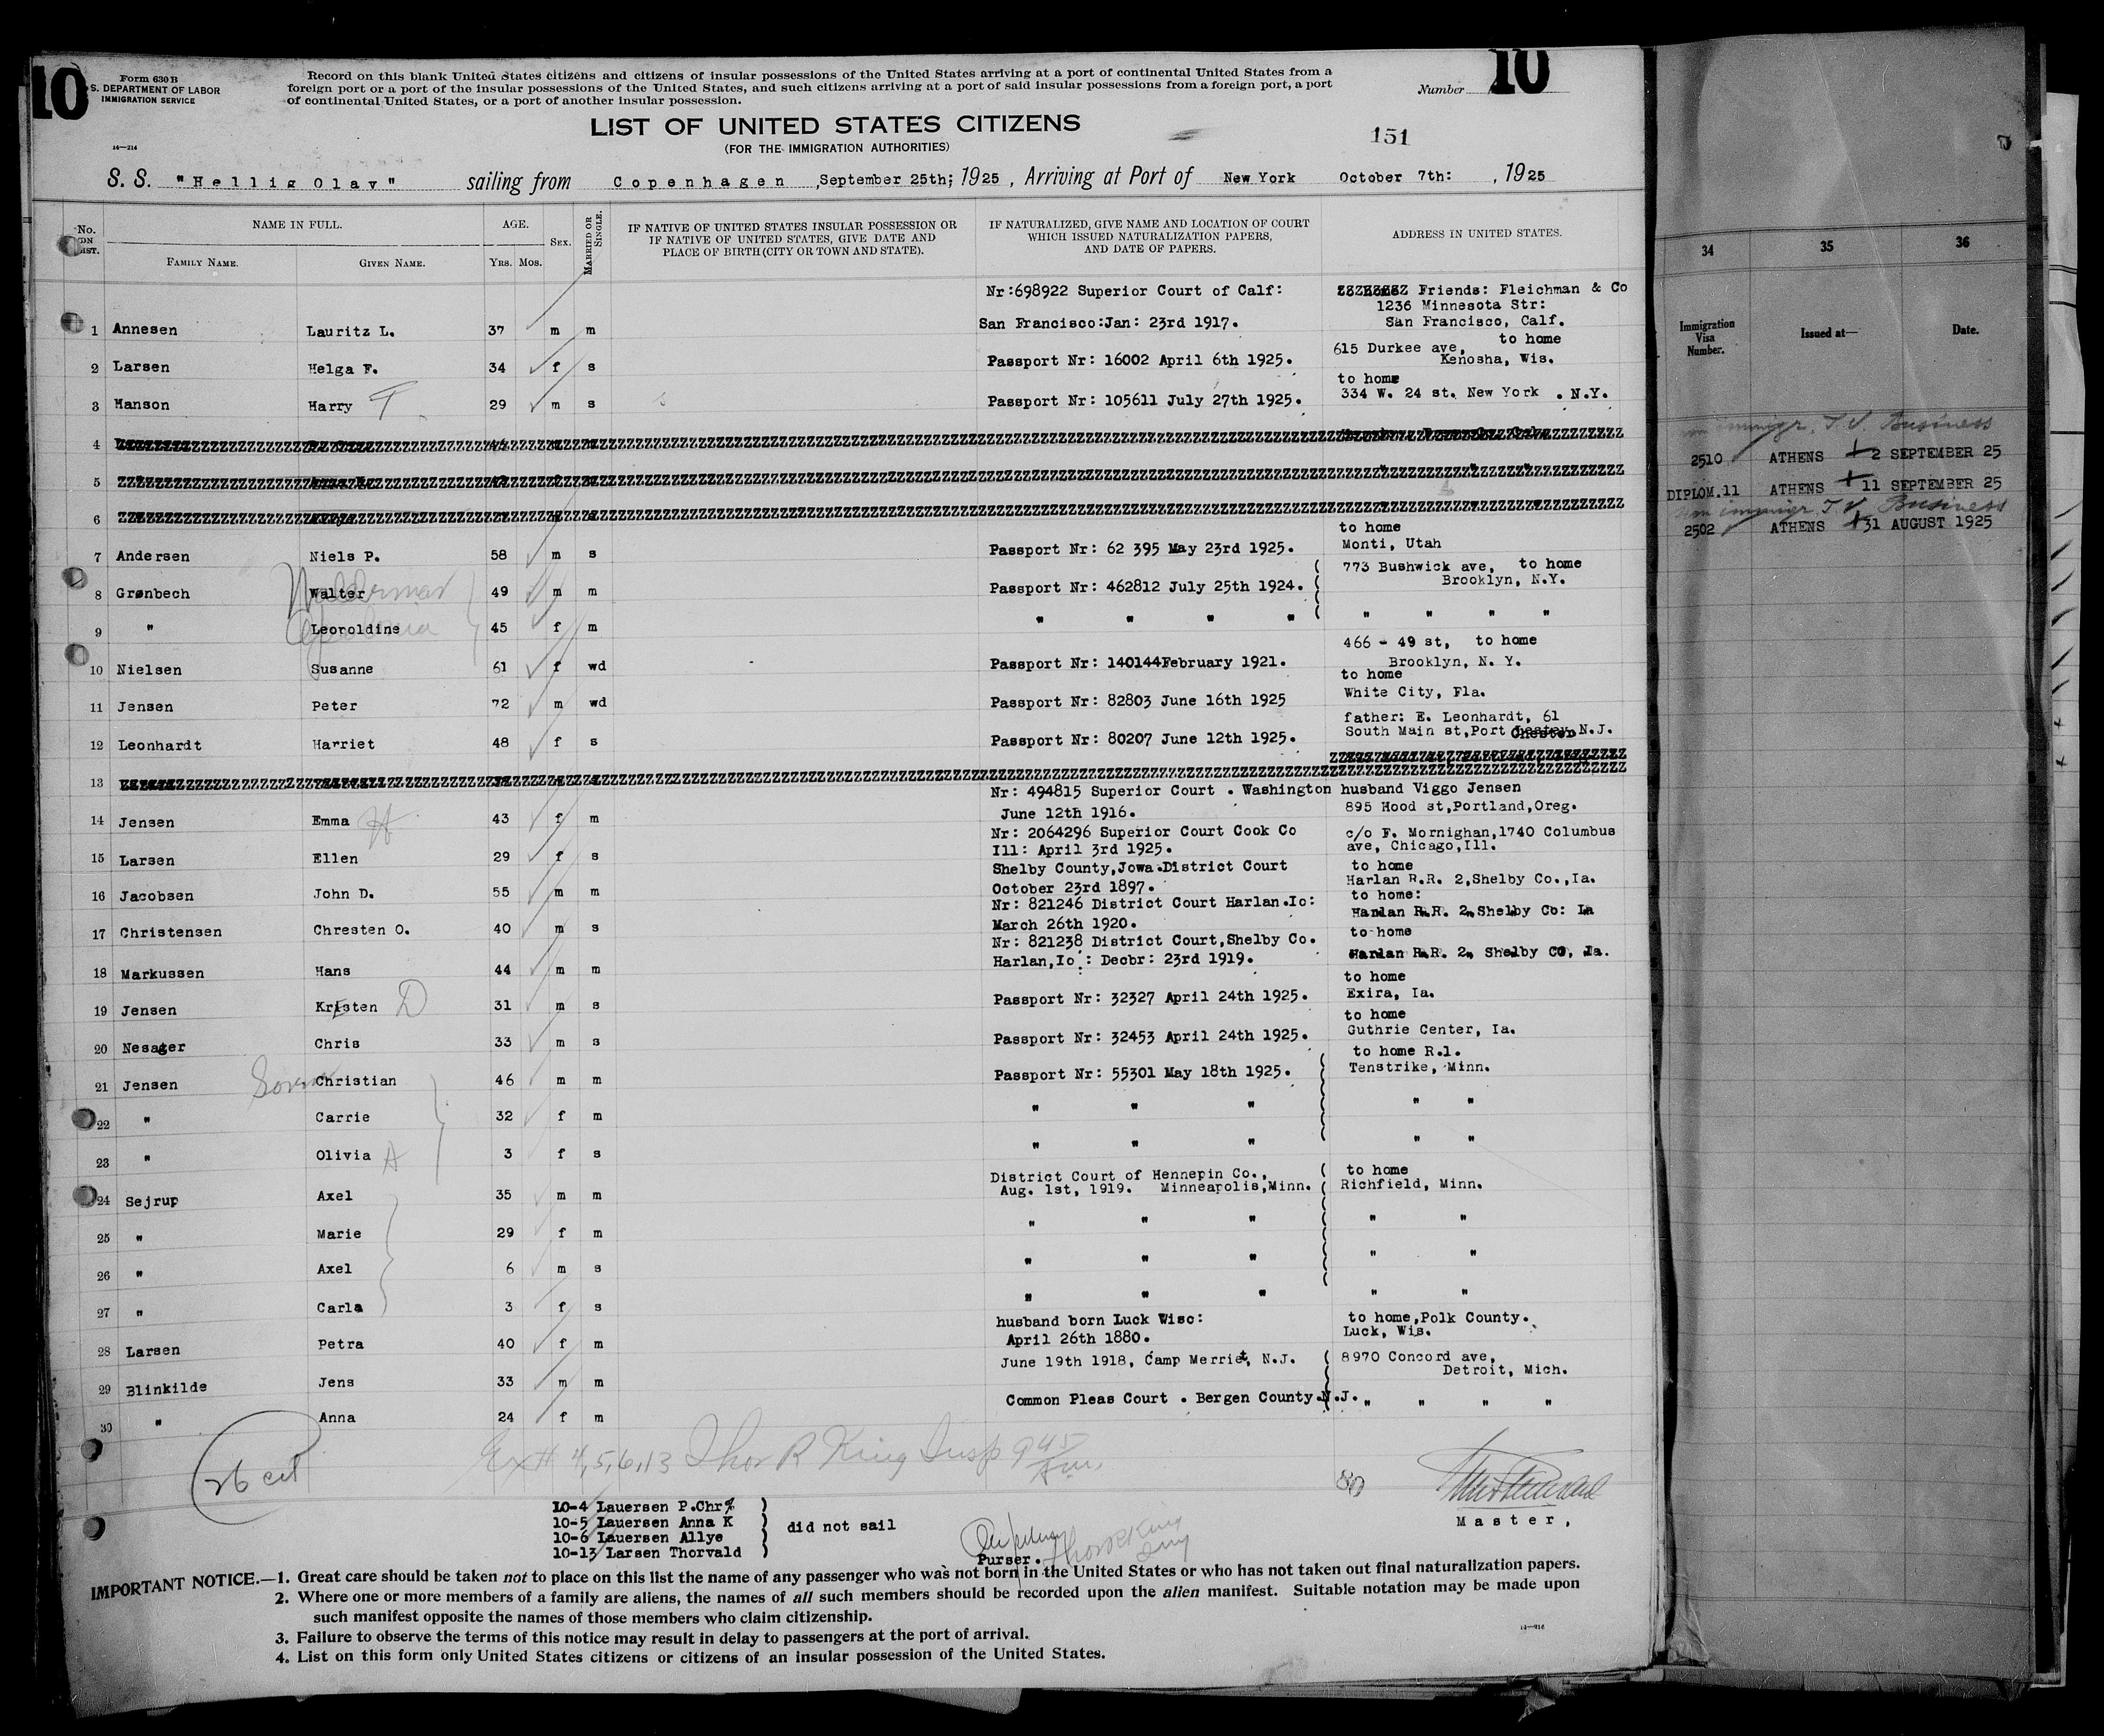 10
Form 630 B
S. DEPARTMENT OF LABOR
IMMIGRATION SERVICE
Record on this blank United States citizens and citizens of insular possessions of the United States arriving at a port of continental United States from a
foreign port or a port of the insular possessions of the United States, and such citizens arriving at a port of said insular possessions from a foreign port, a port
of continental United States, or a port of another insular possession.
Number 10
LIST OF UNITED STATES CITIZENS
(FOR THE IMMIGRATION AUTHORITIES)
151
14—214
S. S. "Hellig Olav" sailing from Copenhagen, September 25th; 1925, Arriving at Port of New York October 7th: , 1925
No. ON LIST.
NAME IN FULL.
FAMILY NAME. GIVEN NAME.
AGE.
YRS. MOS.
SEX.
MARRIED OR SINGLE.
IF NATIVE OF UNITED STATES INSULAR POSSESSION OR
IF NATIVE OF UNITED STATES, GIVE DATE AND
PLACE OF BIRTH (CITY OR TOWN AND STATE).
IF NATURALIZED, GIVE NAME AND LOCATION OF COURT
WHICH ISSUED NATURALIZATION PAPERS,
AND DATE OF PAPERS.
ADDRESS IN UNITED STATES.
Nr:698922 Superior Court of Calf: Friends: Fleichman & Co
1236 Minnesota Str:
1 Annesen Lauritz L. 37 m m San Francisco:Jan: 23rd 1917. San Francisco, Calf.
to home
615 Durkee ave,
2 Larsen Helga F. 34 f s Passport Nr: 16002 April 6th 1925. Kenosha, Wis.
to home
3 Hanson Harry T 29 m s Passport Nr: 105611 July 27th 1925. 334 W. 24 st. New York . N.Y.
4
5
6
to home
7 Andersen Niels P. 58 m s Passport Nr: 62 395 May 23rd 1925. Monti, Utah
773 Bushwick ave, to home
8 Grønbech Walter 49 m m Passport Nr: 462812 July 25th 1924. Brooklyn, N.Y.
9 " Leoroldine 45 f m " " " " " " "
466 - 49 st, to home
10 Nielsen Susanne 61 f wd Passport Nr: 140144 February 1921. Brooklyn, N. Y.
to home
11 Jensen Peter 72 m wd Passport Nr: 82803 June 16th 1925 White City, Fla.
father: E. Leonhardt, 61
12 Leonhardt Harriet 48 f s Passport Nr: 80207 June 12th 1925. South Main st,Port Chester N.J.
13
Nr: 494815 Superior Court . Washington husband Viggo Jensen
14 Jensen Emma 43 f m June 12th 1916. 895 Hood st,Portland,Oreg.
Nr: 2064296 Superior Court Cook Co c/o F. Mornighan,1740 Columbus
15 Larsen Ellen 29 f s Ill: April 3rd 1925. ave, Chicago,Ill.
Shelby County,Jowa.District Court to home
16 Jacobsen John D. 55 m m October 23rd 1897. Harlan R.R. 2,Shelby Co.,Ia.
Nr: 821246 District Court Harlan.Io: to home:
17 Christensen Chresten O. 40 m s March 26th 1920. Harlan R.R. 2, Shelby Co: Ia
Nr: 821238 District Court,Shelby Co. to home
18 Markussen Hans 44 m m Harlan,Io : Decbr: 23rd 1919. Harlan R.R. 2, Shelby CO, Ia.
to home
19 Jensen Kristen D 31 m s Passport Nr: 32327 April 24th 1925. Exira, Ia.
to home
20 Nesager Chris 33 m s Passport Nr: 32453 April 24th 1925. Guthrie Center, Ia.
to home R.1.
21 Jensen Christian 46 m m Passport Nr: 55301 May 18th 1925. Tenstrike, Minn.
22 " Carrie 32 f m " " " " "
23 " Olivia A 3 f s " " " " "
District Court of Hennepin Co., to home
24 Sejrup Axel 35 m m Aug. 1st, 1919. Minneapolis,Minn. Richfield, Minn.
25 " Marie 29 f m " " " " "
26 " Axel 6 m s " " " " "
27 " Carla 3 f s " " " " "
husband born Luck Wisc: to home,Polk County.
28 Larsen Petra 40 f m April 26th 1880. Luck, Wis.
June 19th 1918, Camp Merriet, N.J. 8970 Concord ave,
29 Blinkilde Jens 33 m m Detroit, Mich.
30 " Anna 24 f m Common Pleas Court . Bergen County.N.J. " " " "
26 cit
Ex # 4,5,6,13 Thor R King Insp 9 45 Am.
80
10-4 Lauersen P.Chr
10-5 Lauersen Anna K
10-6 Lauersen Allye
10-13 Larsen Thorvald
did not sail
Purser.
Thor R King
Master,
IMPORTANT NOTICE.—1. Great care should be taken not to place on this list the name of any passenger who was not born in the United States or who has not taken out final naturalization papers.
2. Where one or more members of a family are aliens, the names of all such members should be recorded upon the alien manifest. Suitable notation may be made upon
such manifest opposite the names of those members who claim citizenship.
3. Failure to observe the terms of this notice may result in delay to passengers at the port of arrival.
4. List on this form only United States citizens or citizens of an insular possession of the United States.
34 35 36
Immigration Visa Number. Issued at— Date.
immigr. T.V. Business
2510 ATHENS 2 SEPTEMBER 25
DIPLOM.11 ATHENS 11 SEPTEMBER 25
immigr T.V. Business
2502 ATHENS 31 AUGUST 1925